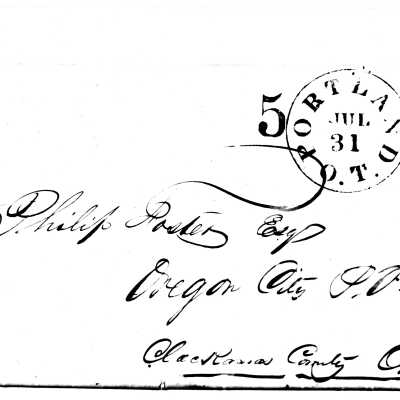 5
PORTLAND O.T.
JUL
31
Philip Foster Esq
Oregon City P.
Clackamas County O